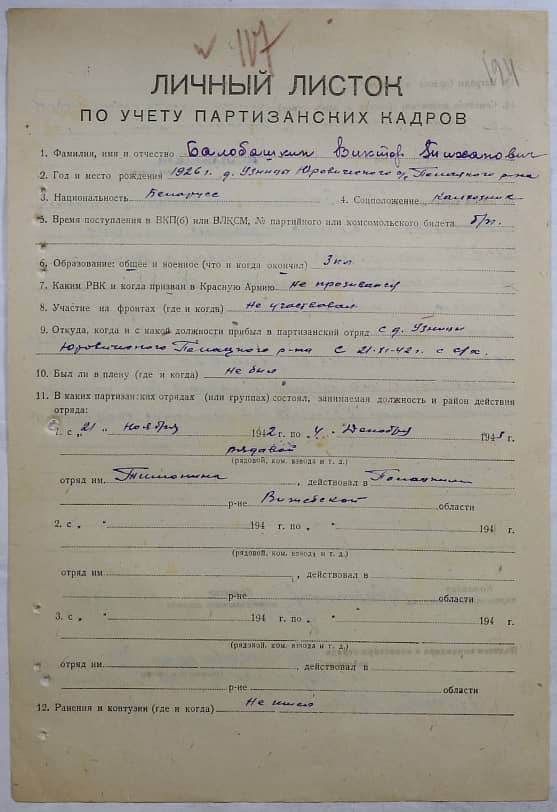 107
ЛИЧНЫЙ ЛИСТОК
ПО УЧЕТУ ПАРТИЗАНСКИХ КАДРОВ
1. Фамилия, имя и отчество Балобашкин Виктор
2. Год и место рождения 1926 г. д. Узницы р-на
3. Национальность Белорусс 4. Соцположение колхозник
5. Время поступления в ВКП(б) или ВЛКСМ, № партийного или комсомольского билета б/п.
6. Образование: общее и военное (что и когда окончил) 3 кл
7. Каким РВК и когда призван в Красную Армию не призывался
8. Участие на фронтах (где и когда) Не участвовал
9. Откуда, когда и с какой должности прибыл в партизанский отряд с д. Узницы
р-на с 21-XI-42 г. с с/х.
10. Был ли в плену (где и когда) не был
11. В каких партизанских отрядах (или группах) состоял, занимаемая должность и район действия
отряда:
1. с „21 „ ноября 1942 г. по „4 „ декабря 194 г.
рядовой
(рядовой, ком. взвода и т. д.)
отряд им. Тимонина, действовал в
р-не Витебской области
2. с „ „ 194 г. по „ „ 194 г.
(рядовой, ком. взвода и т. д.)
отряд им. , действовал в
р-не области
3. с „ „ 194 г. по „ „ 194 г.
(рядовой, ком. взвода и т. д.)
отряд им. , действовал в
р-не области
12. Ранения и контузии (где и когда) Не имел